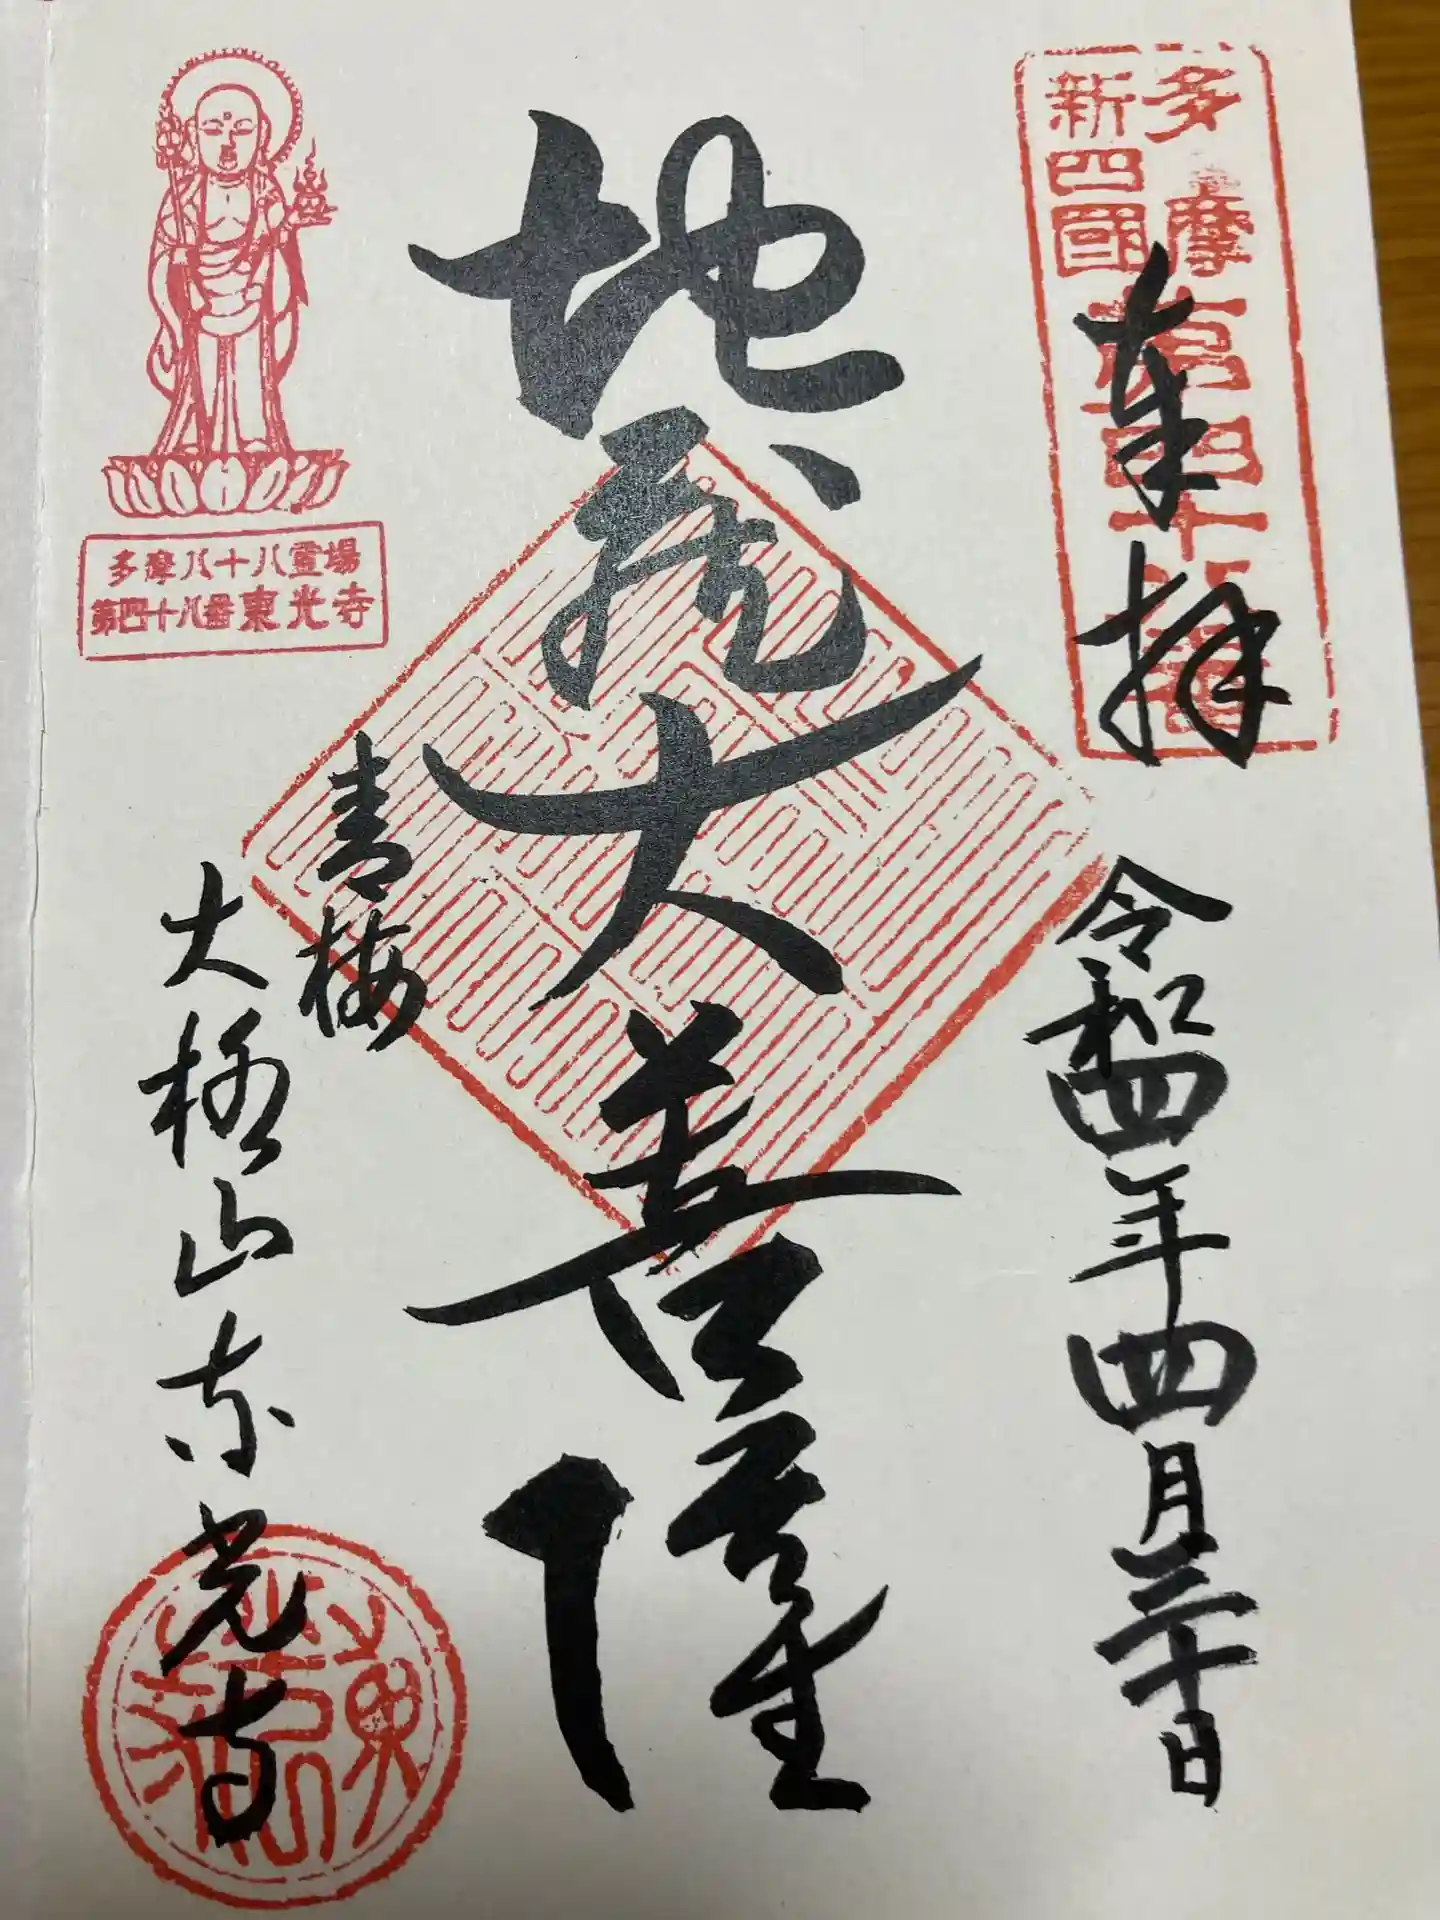 多摩
新四國
第四十八番
奉拝
令和四年四月三十日
地蔵大菩薩
青梅
大柳山東光寺
多摩八十八霊場
第四十八番東光寺